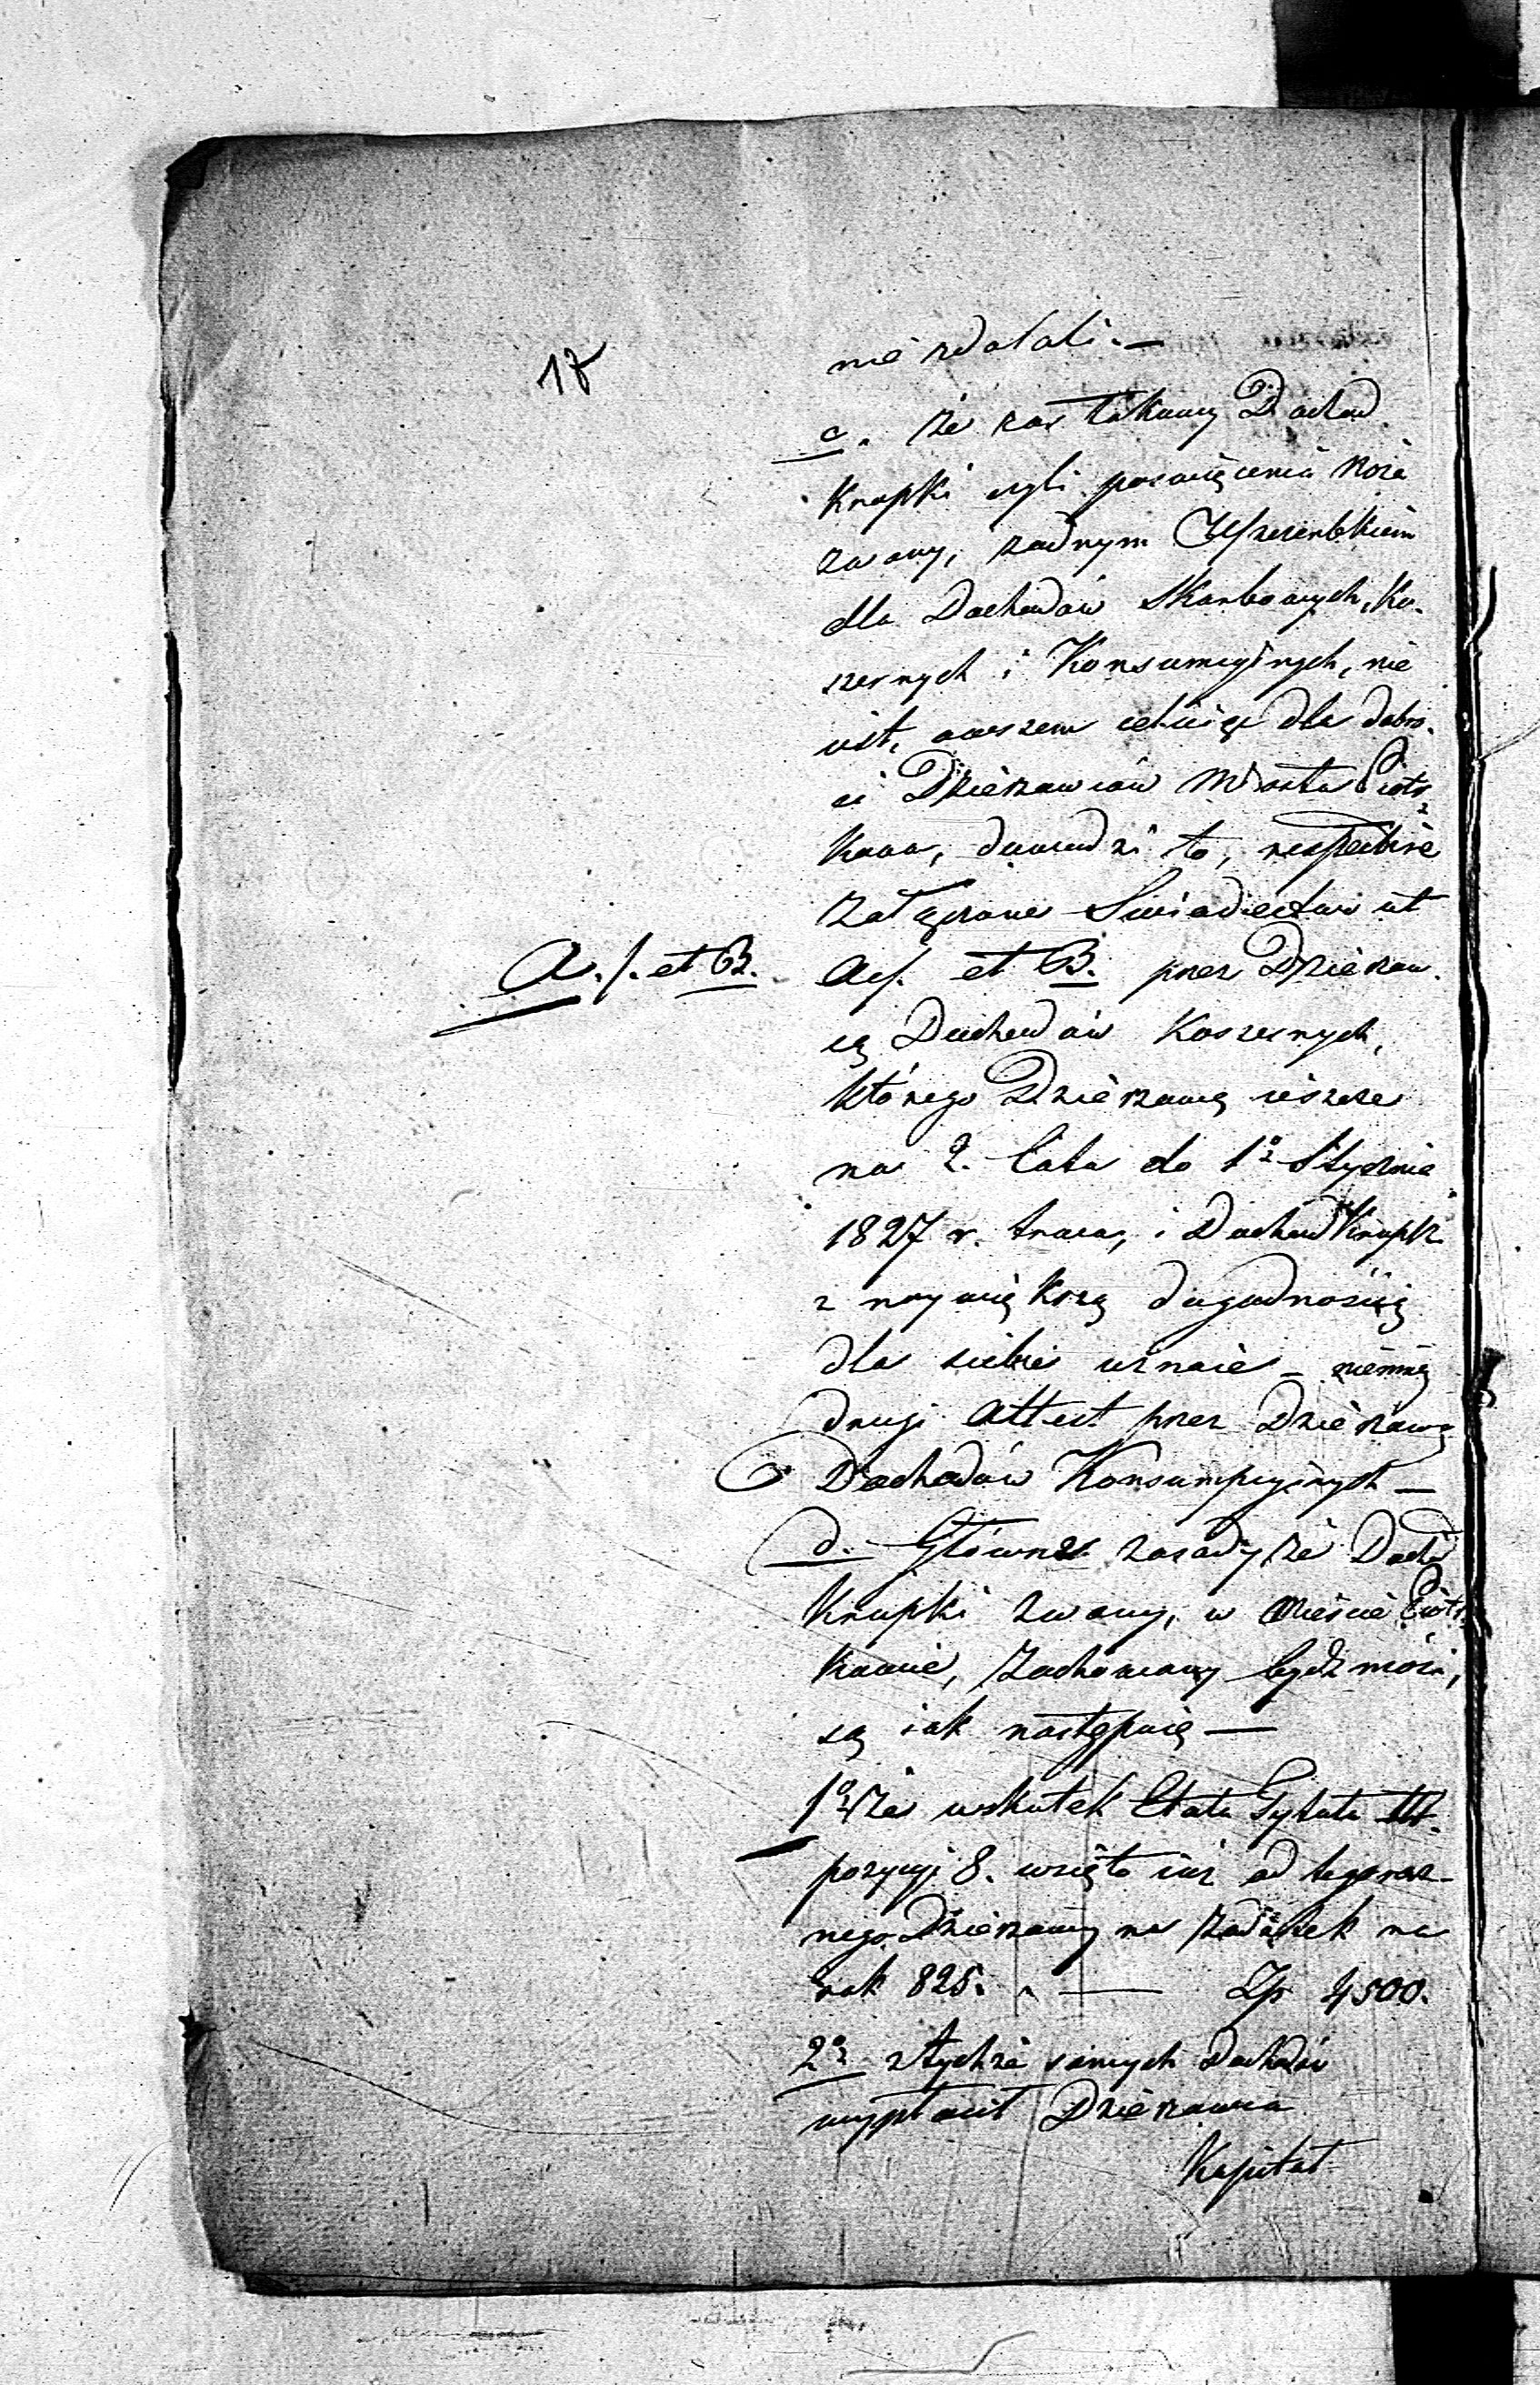 17
nie zdołali. —
c. że zas takowy Dochód
Krupki czyli poswięcenia Noża
zwany, żadnym Uszczerbkiem
dla Dochodów Skarbowych, Ko-
szernych i Konsumcyinych, nie
iest, owszem dla dobro-
ci Dzierzawców Miasta Piotr-
kowa, dowodzi to, respective
załączone Swiadectwo ut
A. /. et B.
A /. et B. przez Dzierzaw-
cę Dochodów Koszernych,
którego Dzierzawa ieszcze
na 2. lata do 1º Stycznia
1827 r. trwa, i Dochód Krupki
z naywiększą dogodnością
dla siebie uznaie – niemniey
drugi Attest przez Dzierzawcę
Dochodów Konsumpcyinych —
d. Główne zasady że Dochód
Krupki zwany, w Mieście Piotr-
kowie, zachowany bydź może,
są iak następuie —
1º Że wskutek Etatu Tytułu III.
pozycyi 8. wzięto iuż od tegorocz-
nego Dzierzawcy na zadatek na
rok 825. — Zł 4500.
2º z tychże samych Dochodów
wypłacił Dzierzawca
Kapitał